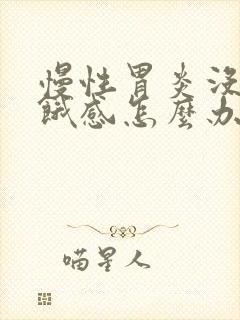 慢性胃炎沒
餓感怎麼办
喵星人